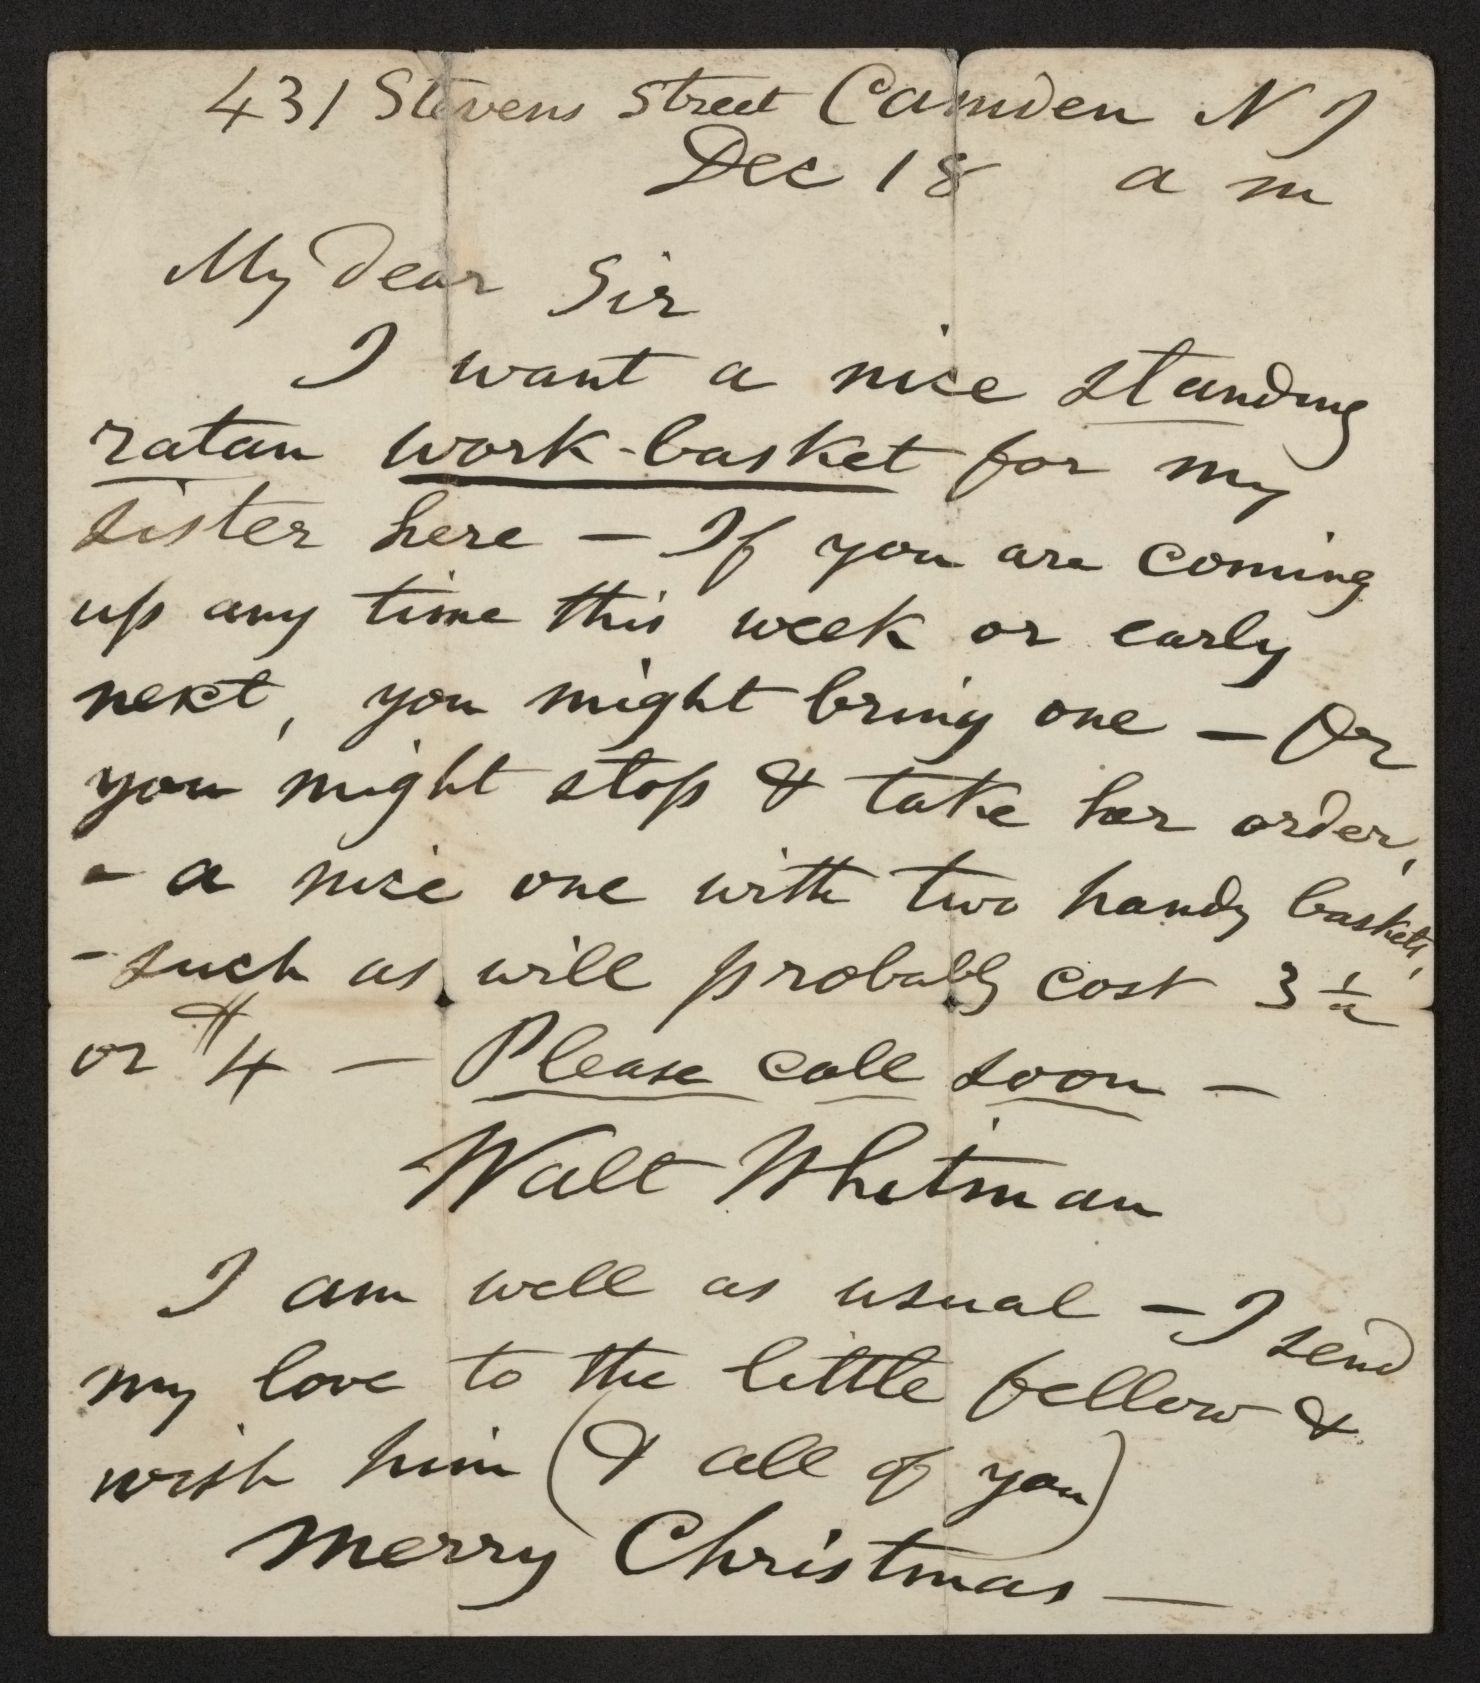 431 Stevens Street Camden N J
Dec 18 a m
My dear Sir
I want a nice standing
ratan work-basket for my
sister here — If you are coming
up any time this week or early
next, you might bring one — Or
you might stop & take her order,
- a nice one with two handy baskets,
- such as will probably cost 3 1/2
or $4 — Please call soon —
Walt Whitman
I am well as usual — I send
my love to the little fellow &
wish him (& all of you)
merry Christmas —